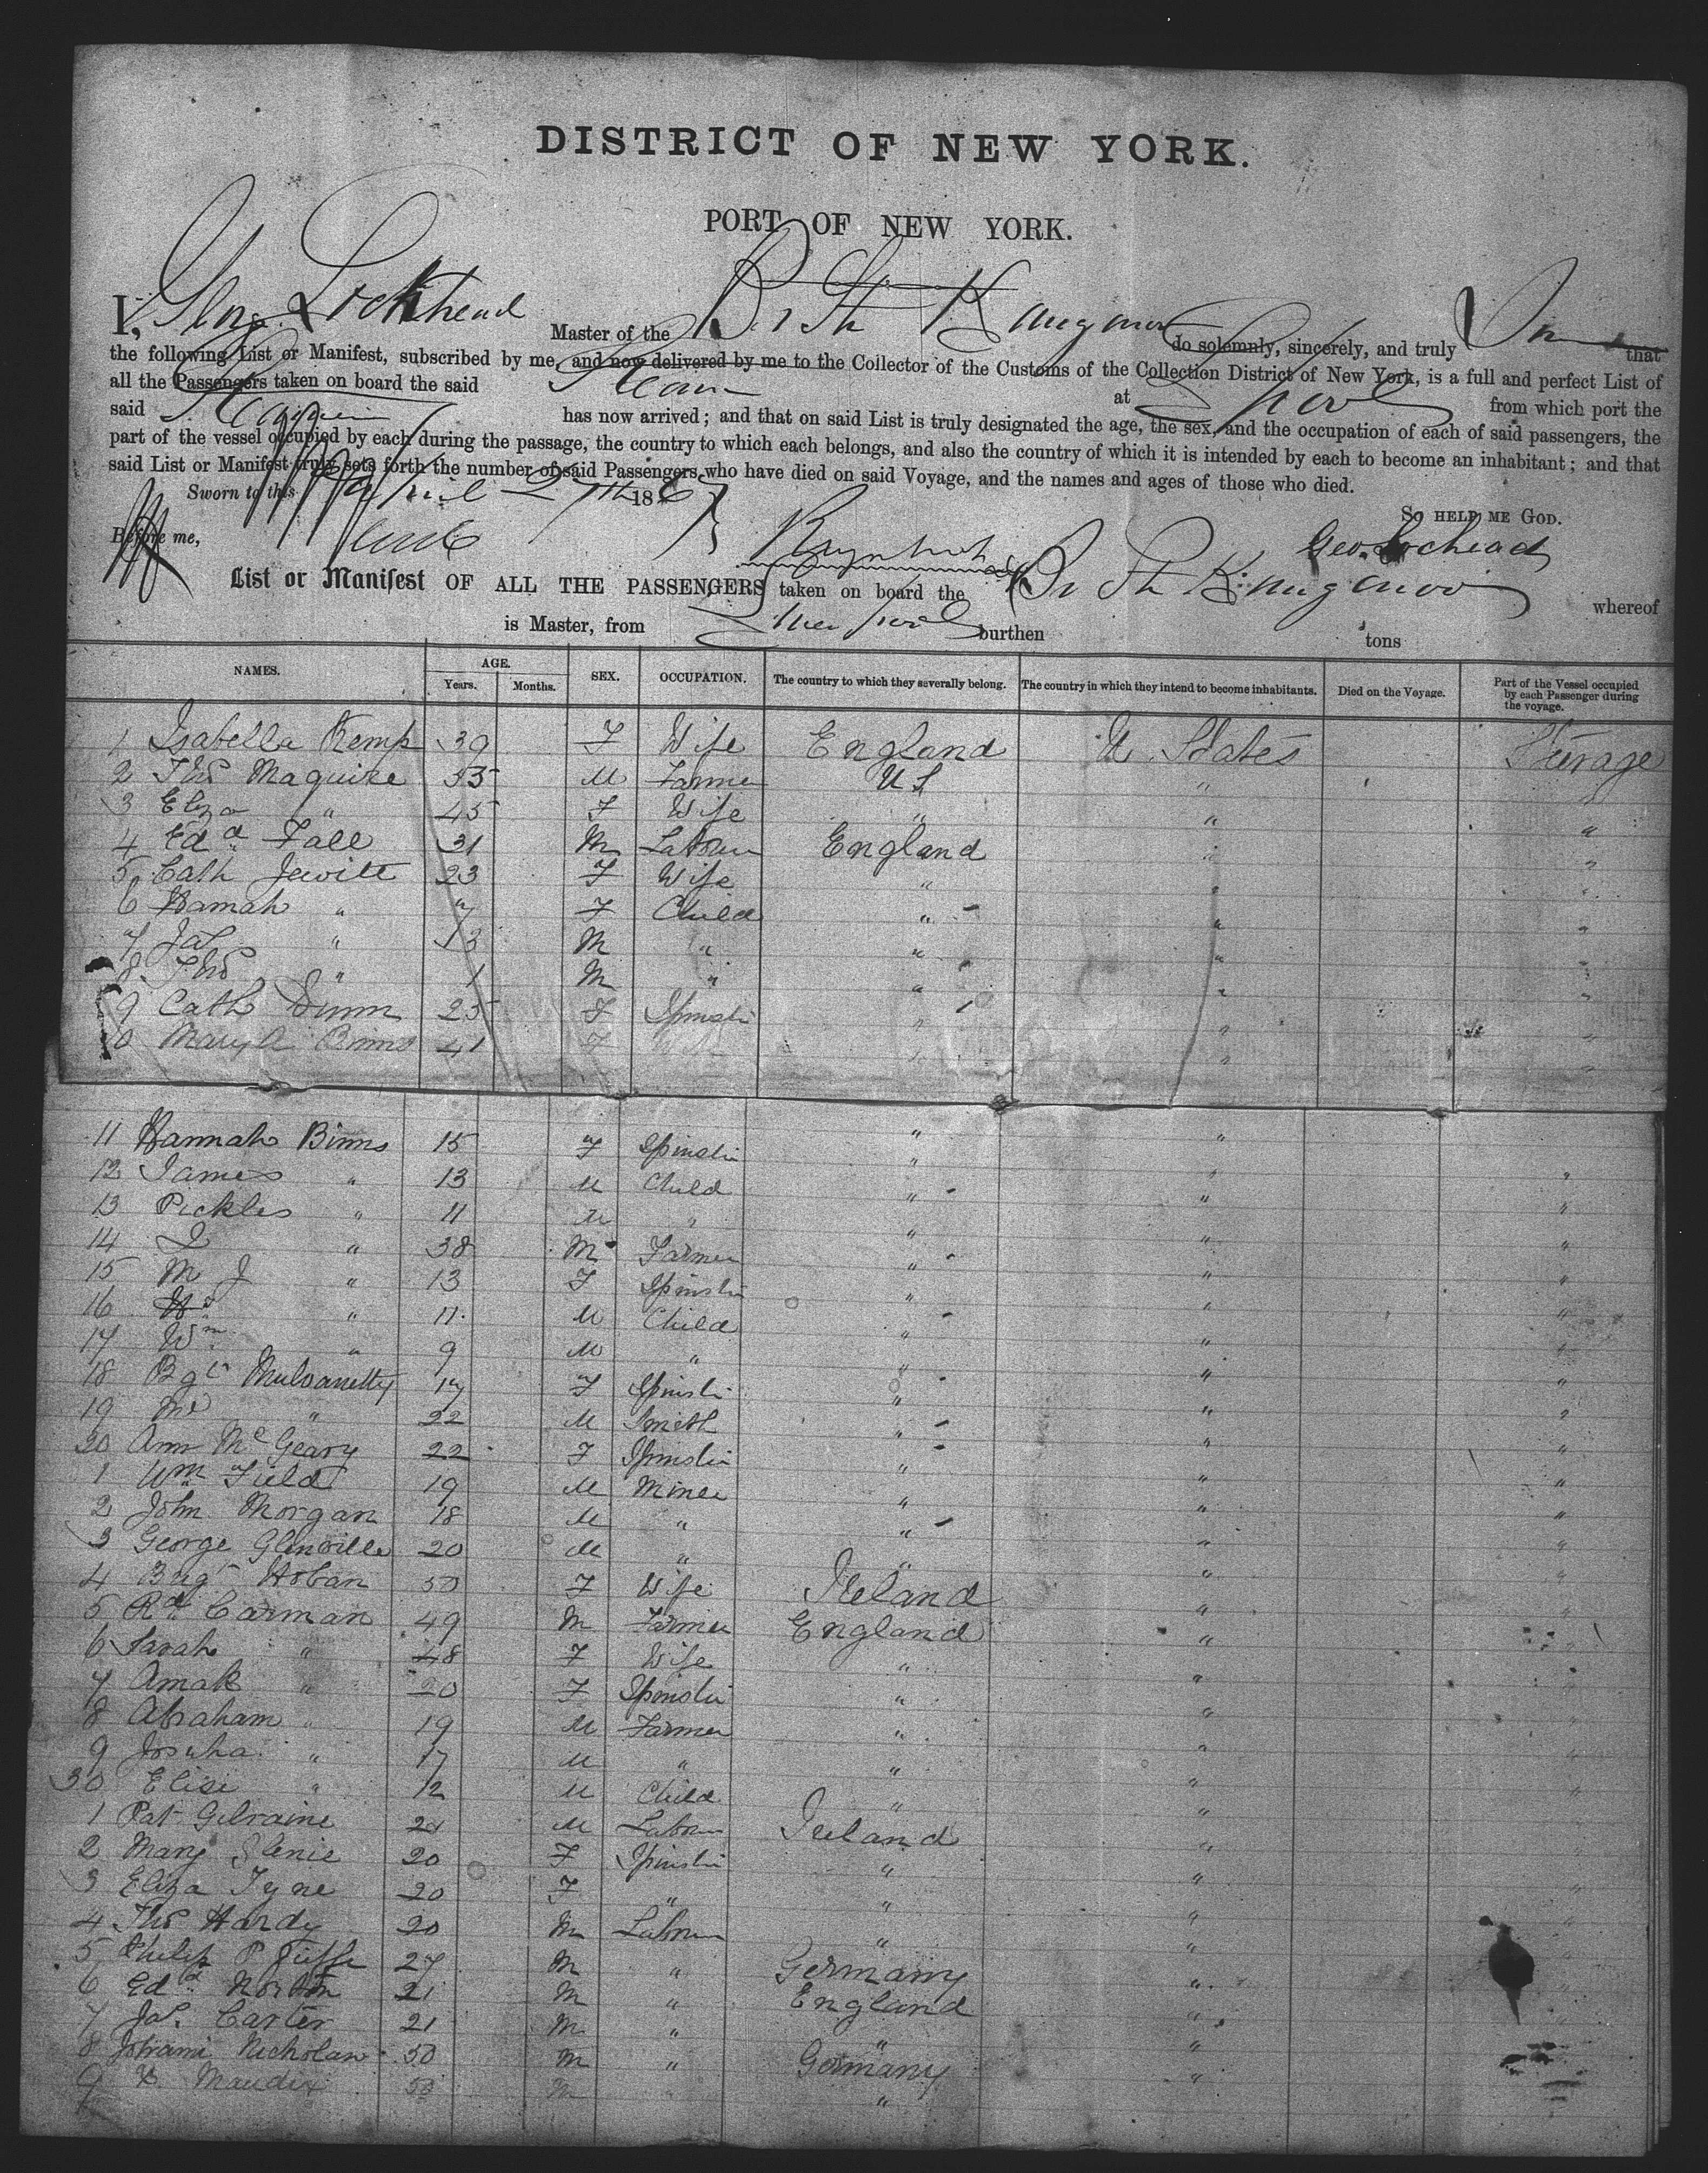 DISTRICT OF NEW YORK.
PORT OF NEW YORK.
I, Geo. Lockhead Master of the Br Str Kangaroo do solemnly, sincerely, and truly Swear that
the following List or Manifest, subscribed by me, and now delivered by me to the Collector of the Customs of the Collection District of New York, is a full and perfect List of
all the Passengers taken on board the said Steamer at Liverpool from which port the
said Steamer has now arrived; and that on said List is truly designated the age, the sex, and the occupation of each of said passengers, the
part of the vessel occupied by each during the passage, the country to which each belongs, and also the country of which it is intended by each to become an inhabitant; and that
said List or Manifest truly sets forth the number of said Passengers who have died on said Voyage, and the names and ages of those who died.
Sworn to this April 27th 186
So HELP ME GOD.
Before me, Geo. Lochead
List or Manifest OF ALL THE PASSENGERS taken on board the Br Str Kangaroo whereof
is Master, from Liverpool burthen tons
NAMES. AGE. SEX. OCCUPATION. The country to which they severally belong. The country in which they intend to become inhabitants. Died on the Voyage. Part of the Vessel occupied by each Passenger during the voyage.
Years. Months.
1 Isabella Kemp 39 F Wife England U States Steerage
2 Thos Maguire 55 M Farmer U S " "
3 Eliza " 45 F Wife " " "
4 Edd Fall 31 M Labour England " "
5 Cath Jewitt 23 F Wife " " "
6 Hannah " 7 F Child " " "
7 Jas " 3 M " " " "
8 Thos " 1 M " " " "
9 Cath Dunn 25 F Spinster " " "
10 Mary A Binns 41 F Wife " " "
11 Hannah Binns 15 F Spinster " "
12 James " 13 M Child " " "
13 Pickles " 11 M " " " "
14 " 38 M Farmer " " "
15 M J " 13 F Spinster " " "
16 " 11 M Child " " "
17 Wm " 9 M " " " "
18 Bgt Mulvanetty 17 F Spinster " " "
19 " 22 M Smith " " "
20 Ann McGeary 22 F Spinster " " "
1 Wm Field 19 M Miner " " "
2 John Morgan 18 M " " " "
3 George Glenville 20 M " " " "
4 Brigt Hoban 50 F Wife Ireland " "
5 Rd Carman 49 M Farmer England " "
6 Sarah " 48 F Wife " " "
7 Amak " 20 F Spinster " " "
8 Abraham " 19 M Farmer " " "
9 Josuha " 17 M " " " "
30 Elisi " 12 M Child " " "
1 Pat Gilraine 21 M Labour Ireland " "
2 Mary 20 F Spinster " " "
3 Eliza Tyne 20 F " " " "
4 Thos Hardy 20 M Labour " " "
5 Philip P 27 M " Germany " "
6 Edd Norton 21 M " England " "
7 Jas. Carter 21 M " " " "
8 Nicholaus 50 M " Germany " "
9 Maudix 50 M " " "